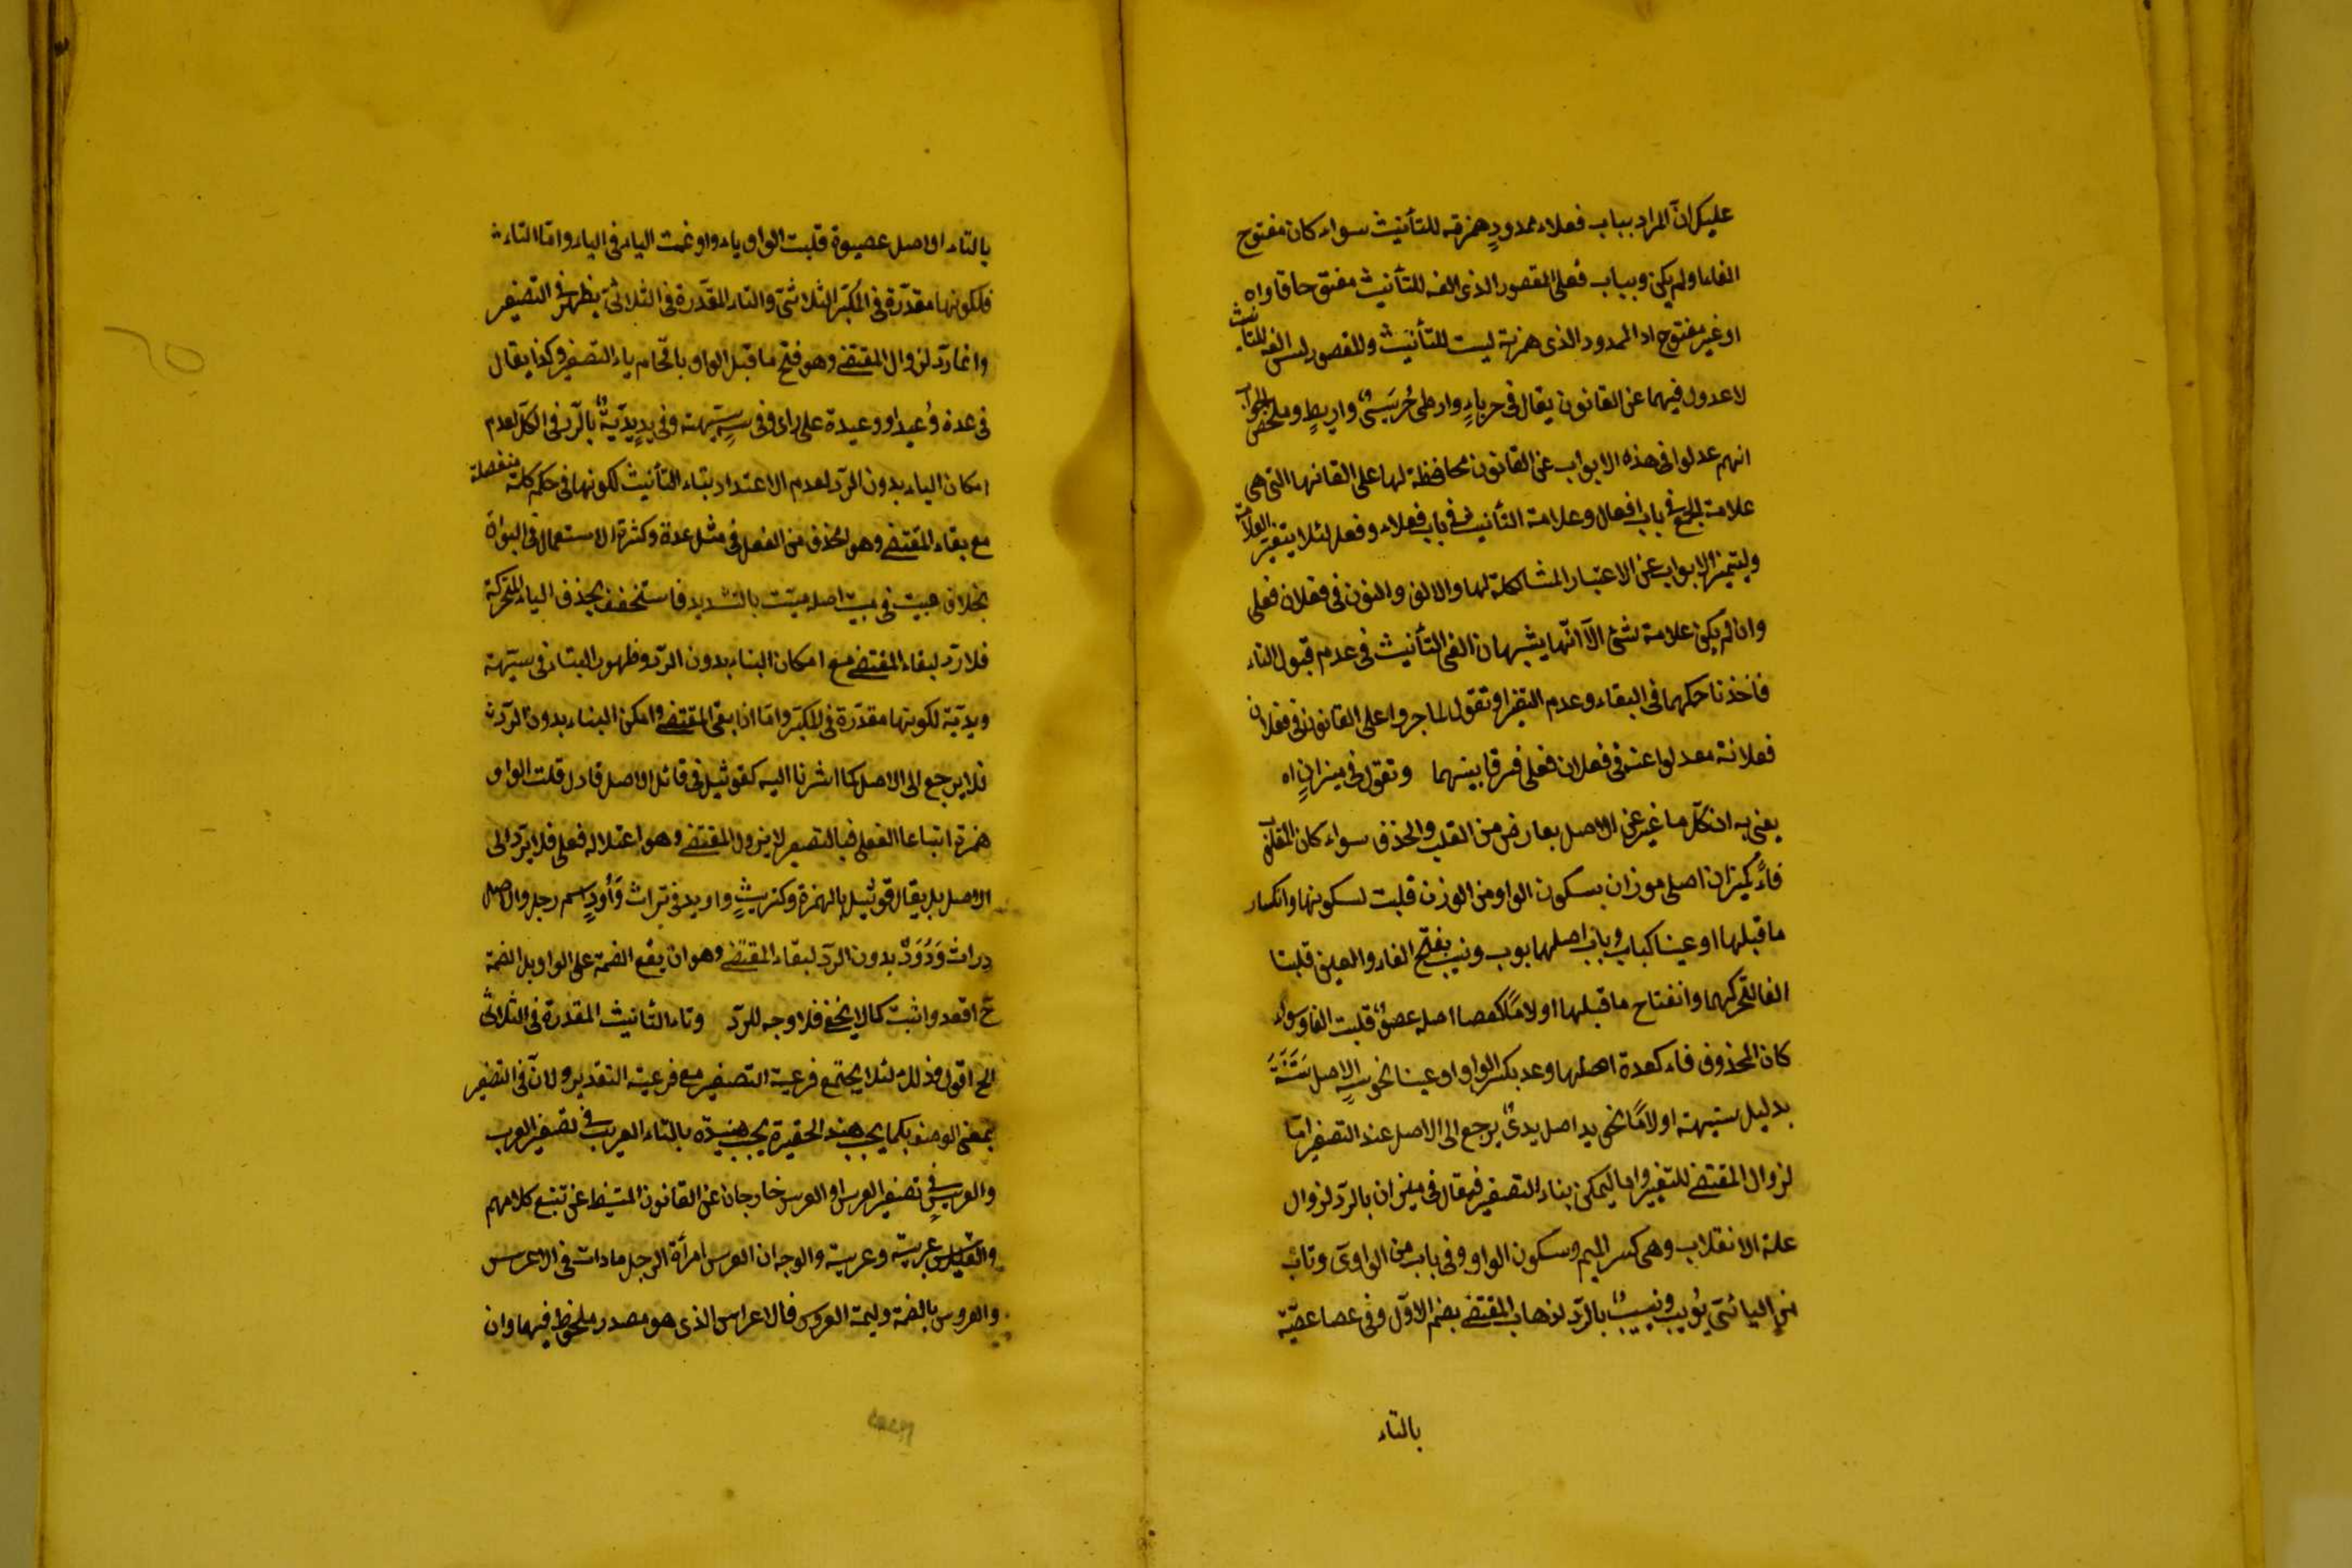 عليك ان المراد بباب فعلاء ممدود همزته للتأنيث سواء كان مفتوح
الفاء اولم يكن وبباب فعلى المقصور الذى الفه للتأنيث مفتوحا فاؤه
او غير مفتوح اذ الممدود الذى همزته ليست للتأنيث والمقصور ليس الفه للتأنيث
لا عدول فيهما عن القانون يقال فى حرباء وارطى حُرَيبىّ واريط وملخص الجواب
انهم عدلوا فى هذه الابواب عن القانون محافظة لها على القابها التى هى
علامة الجمع فى باب افعال وعلامة التأنيث فى باب فعلاء وفعلى لئلا يتغير العلامة
وليتميز الابواب عن الاعتبار المشاكلة لها والالف والنون فى فعلان فعلى
وان لم يكن علامة لشئ الا انهما يشبهان الفى التأنيث فى عدم قبول التاء
فاخذنا حكمهما فى البقاء وعدم التغير او تقول لما جروا على القانون فى فعلان
فعلانة فعدلوا عنه فى فعلان فعلى فرقا بينهما وتقول فى ميزان اه
يعنى به ان كل ما غير عن الاصل بعارض من القلب والحذف سواء كان المقلوب
فاءً كميزان اصله موزان بسكون الواو من الوزن قلبت لسكونها وانكسار
ما قبلها او عينا كباب وناب اصلهما بوب ونيب بفتح الفاء والعين قلبتا
الفا لتحركهما وانفتاح ما قبلها او لامًا كعصا اصله عصوٌ قلبت الفا وسواء
كان المحذوف فاء كعدة اصلها وعد بكسر الواو او عينا نحو سه الاصل سَتَهٌ
بدليل ستيهة او لامًا نحو يد اصل يدىٌ يرجع الى الاصل عند التصغير اما
لزوال المقتضى للتغيير واما ليمكن بناء التصغير فيقال فى ميزان بالرد لزوال
علة الانقلاب وهى كسر الميم وسكون الواو وفى باب من الواوى وناب
من اليائى بُويب ونييبٌ بالرد لذهاب المقتضى بضم الاول وفى عصا عصيّة
بالتاء
بالتاء الاصل عصيوة قلبت الواو ياء وادغمت الياء فى الياء واما التاء
فلكونها مقدرة فى المكبر الثلاثى والتاء المقدرة فى الثلاثى يظهر فى التصغير
وانما رد لزوال المقتضى وهو فتح ما قبل الواو باقحام ياء التصغير وكذا يقال
فى عدة وُعيد او وعيدة على راى وفى سه ستيهة وفى يد يديّة بالرد فى الكل لعدم
امكان الياء بدون الرد لعدم الاعتداد بتاء التأنيث لكونها فى حكم كلمة منفصلة
مع بقاء المقتضى وهو الحذف من الفعل فى مثل عدة وكثرة الاستعمال فى البواقى
بخلاف مييت فى ميت اصله ميّت بالتشديد فاستخفف بحذف الياء المتحركة
فلا رد لبقاء المقتضى مع امكان البناء بدون الرد وظهور التاء فى ستيهة
ويديّة لكونها مقدرة فى المكبر واما اذا بقى المقتضى وامكن البناء بدون الرد
فلا يرجع الى الاصل كما اشرنا اليه كقوئيل فى قائل الاصل قاول قلبت الواو
همزة اتباعا الفعل فبالتصغير لا يزول المقتضى وهو اعتلال فعله فلا يرد الى
الاصل بل يقال قوئيل بالهمزة وكتريث واديد فى تراث وأُدد اسم رجل والاصل
وراث ووُدَد بدون الرد لبقاء المقتضى وهو ان يقع الضمة على الواو بل الضمة
ح اقعد واثبت كما لا يخفى فلا وجه للرد وتاء التأنيث المقدرة فى الثلاثى
الخ اقول وذلك لئلا يجتمع فرعية التصغير مع فرعية التقدير ولان فى التصغير
معنى الوصف فكما يجب هند الحقيرة يجب هنيدة بالتاء العريب فى تصغير العرب
والعريس فى تصغير العرس او العرس خارجان عن القانون المستنبط عن تتبع كلامهم
والقياس عريبة وعريسة والوجه ان العرس امرأة الرجل مادات فى الاعرس
والعروس بالضمة وليمة العروس فالاعراس الذى هو مصدر ملحوظ فيهما وان